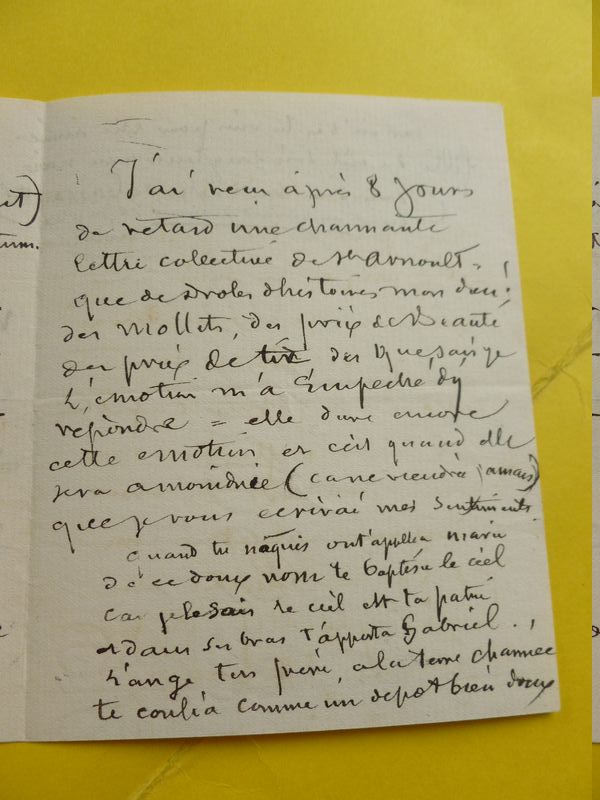 J'ai reçu après 8 jours
de retard une charmante
lettre colective de St Arnoult,
que de droles d'histoires mon dieu!
des mollets, des prix de Beauté
des prix de tir des
L'émotion m'a empeché d'y
repondre = elle dure encore
cette emotion et c'est quand elle
sera amoindrie (ca ne viendra jamais)
que je vous ecrirai mes sentiments.
quand tu naquis on t'appella marie
de ce doux nom te baptisa le ciel
car je le sais le ciel est ta patrie
et dans ses bras t'apporta Gabriel.,
L'ange ton frère, a la terre charmée
te confia comme un depot bien doux